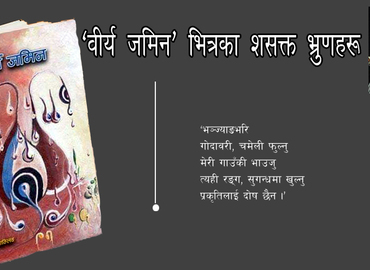 'वीर्य जमिन' भित्रका शसक्त भ्रुणहरू
जमिन
'भञ्ज्याङभरि
गोदावरी, चमेली फुल्नु
मेरी गाउँकी भाउजु
त्यही रङ्ग, सुगन्धमा खुल्नु
प्रकृतिलाई दोष छैन ।'